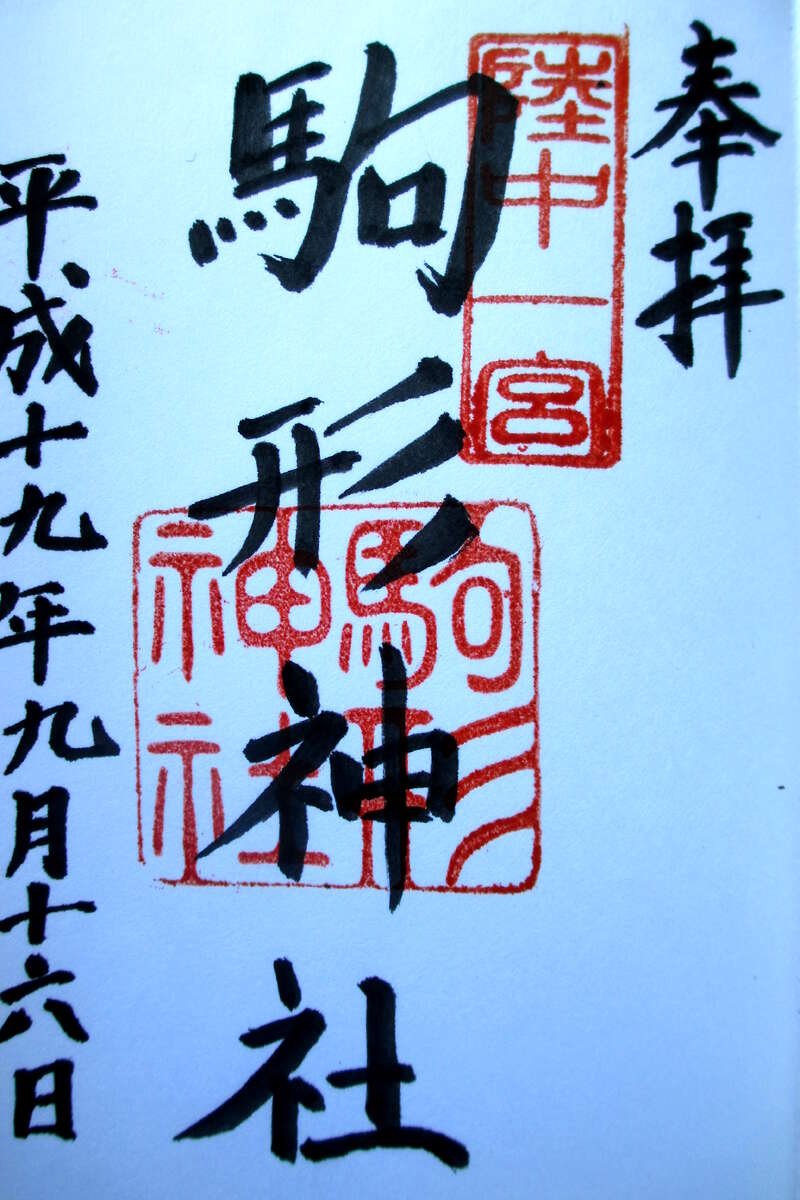 奉拝
陸中一宮
駒形神社
駒形
神社
平成十九年九月十六日